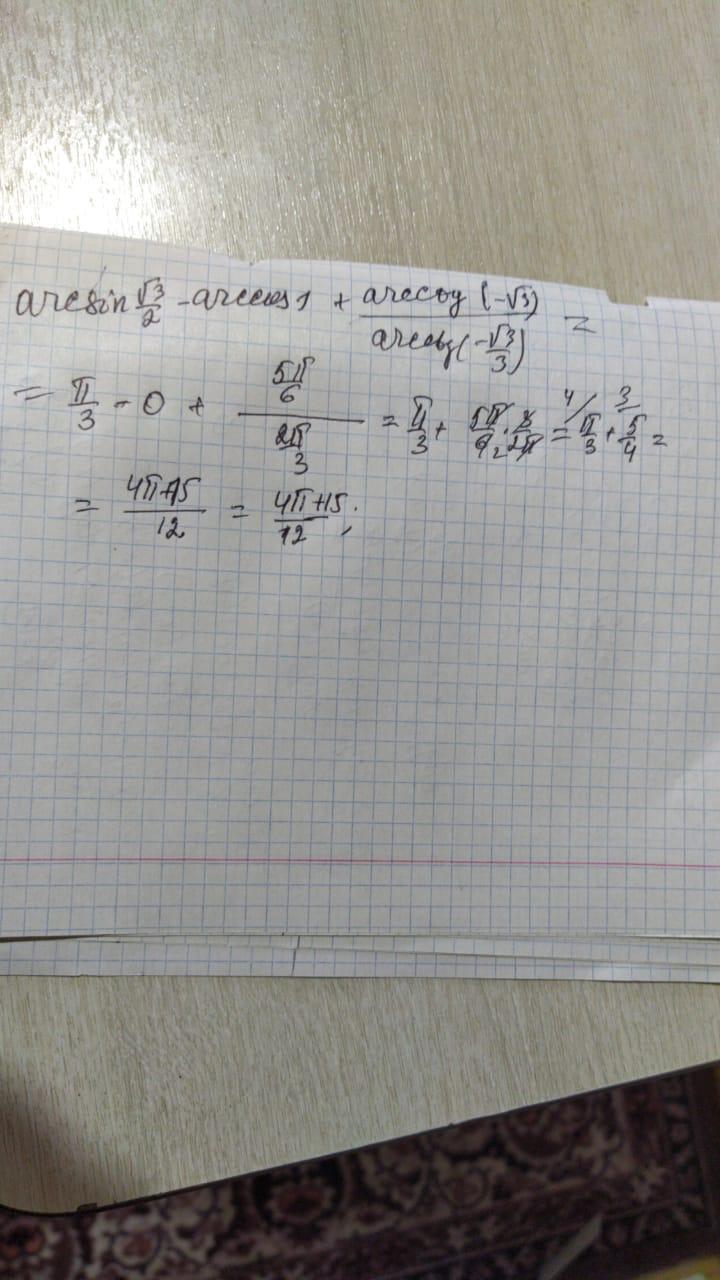 arcsin √3/2 - arccos 1 + arcctg (-√3) / arcctg (-√3/3) =
= π/3 - 0 + 5π/6 / 2π/3 = π/3 + 5π/6₂ · 3/2π = 4/ π/3 + 3/ 5/4 =
= 4π+15/12 = 4π+15/12;